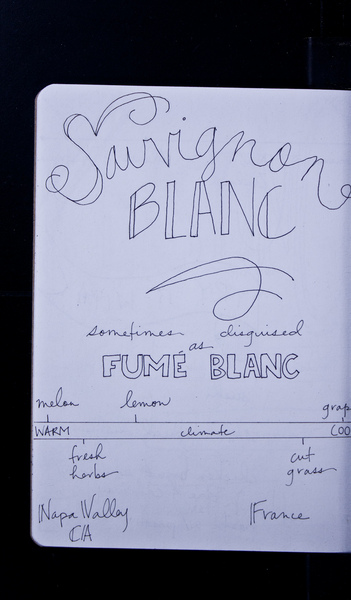 Sauvignon
BLANC
sometimes disguised
as
FUMÉ BLANC
melon lemon grap
WARM climate COO
fresh cut
herbs grass
Napa Valley France
CA